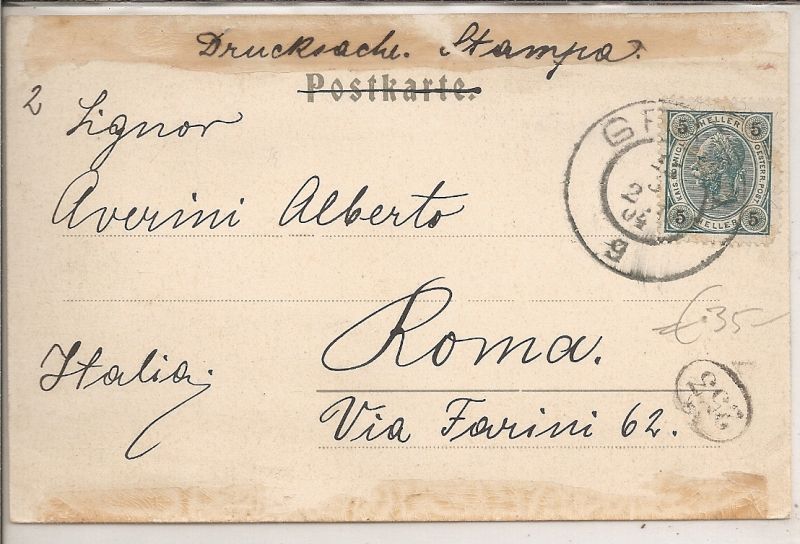 Drucksache. Stampa.
Postkarte.
2
Signor
Averini Alberto
Roma.
Italia.
Via Farini 62.
€ 35-
5 HELLER 5
KAIS. KOENIGL. OESTERR. POST
5 HELLER 5